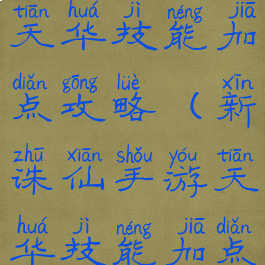 tiān huá jì néng jiā
天华技能加
diǎn gōng lüè xīn
点攻略（新
zhū xiān shǒu yóu tiān
诛仙手游天
huá jì néng jiā diǎn
华技能加点